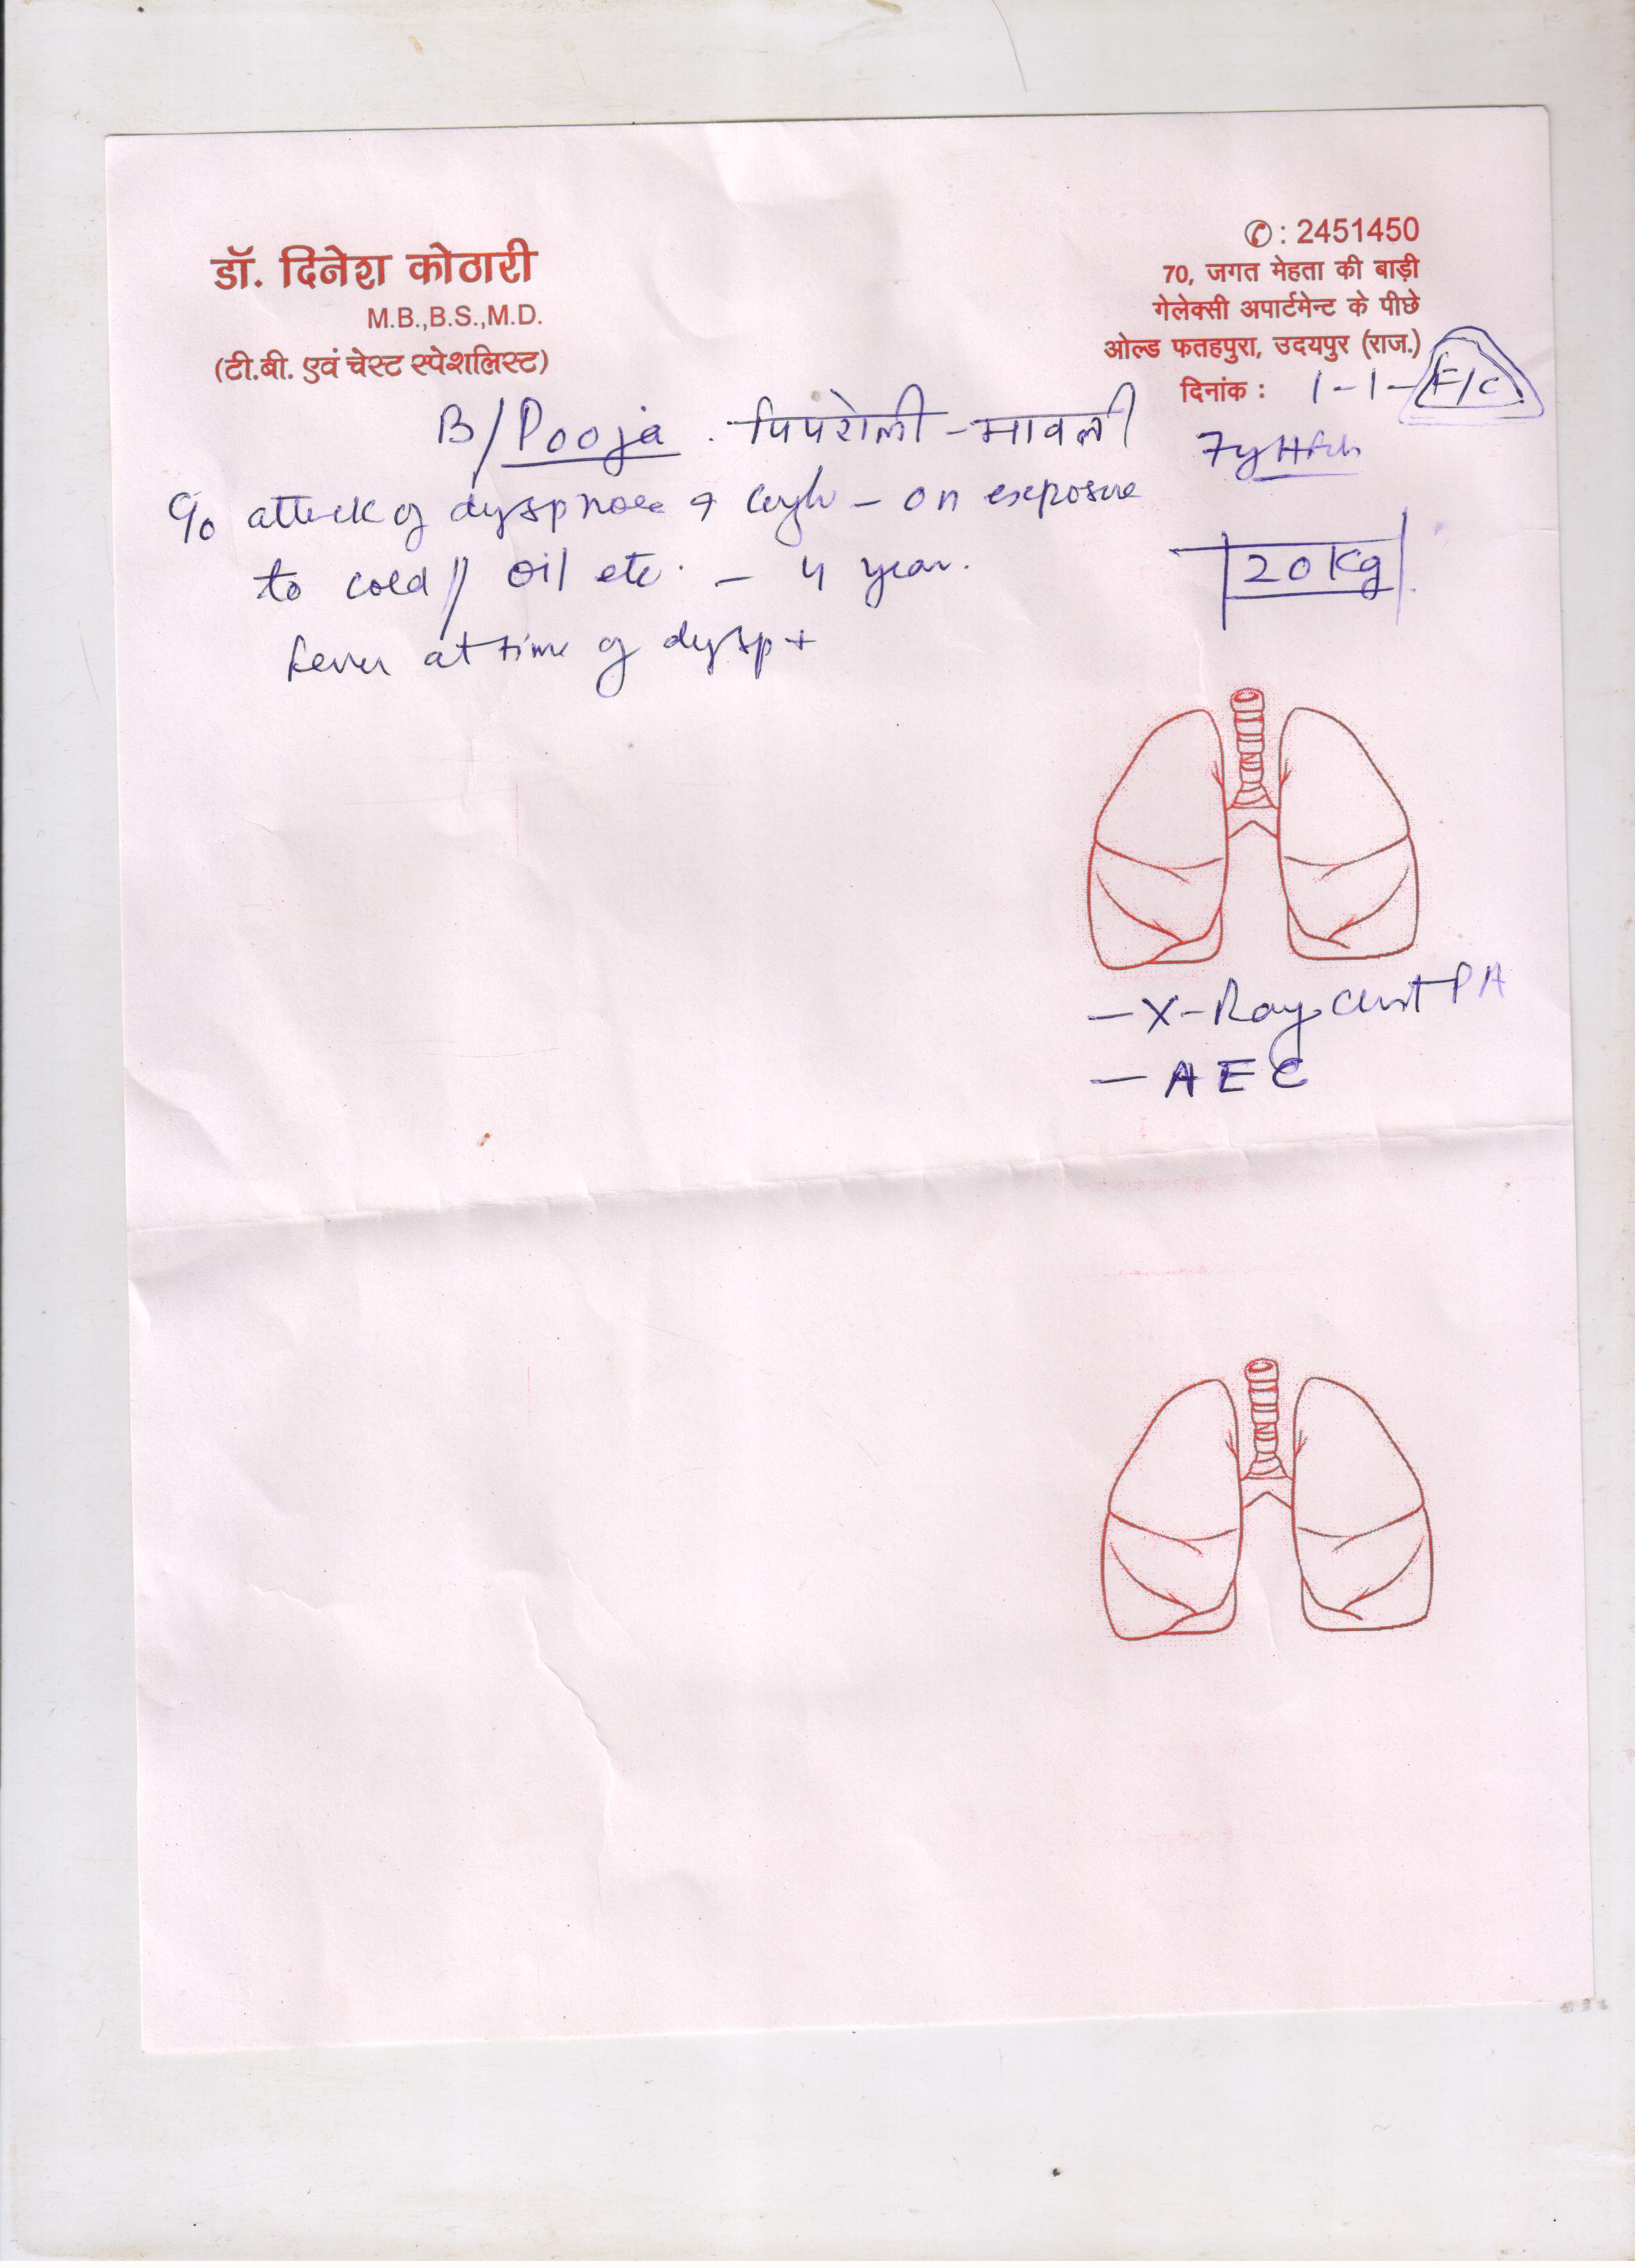 ✆: 2451450
डॉ. दिनेश कोठारी
70, जगत मेहता की बाड़ी
M.B.,B.S.,M.D.
गेलेक्सी अपार्टमेन्ट के पीछे
(टी.बी. एवं चेस्ट स्पेशलिस्ट)
ओल्ड फतहपुरा, उदयपुर (राज.)
दिनांक : 1-1- F/C
B/Pooja . पिपरोली - मावली
C/o attack of dyspnoea & cough - on exposure
to cold // oil etc. - 4 year.
20 Kg
fever at time of dysp +
- X-Ray Chest PA
- AEC